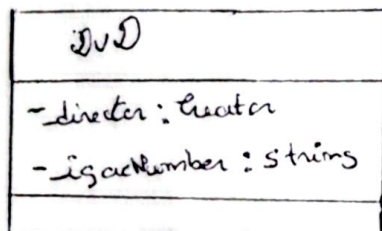 DVD
- director : Creator
- igacNumber : string